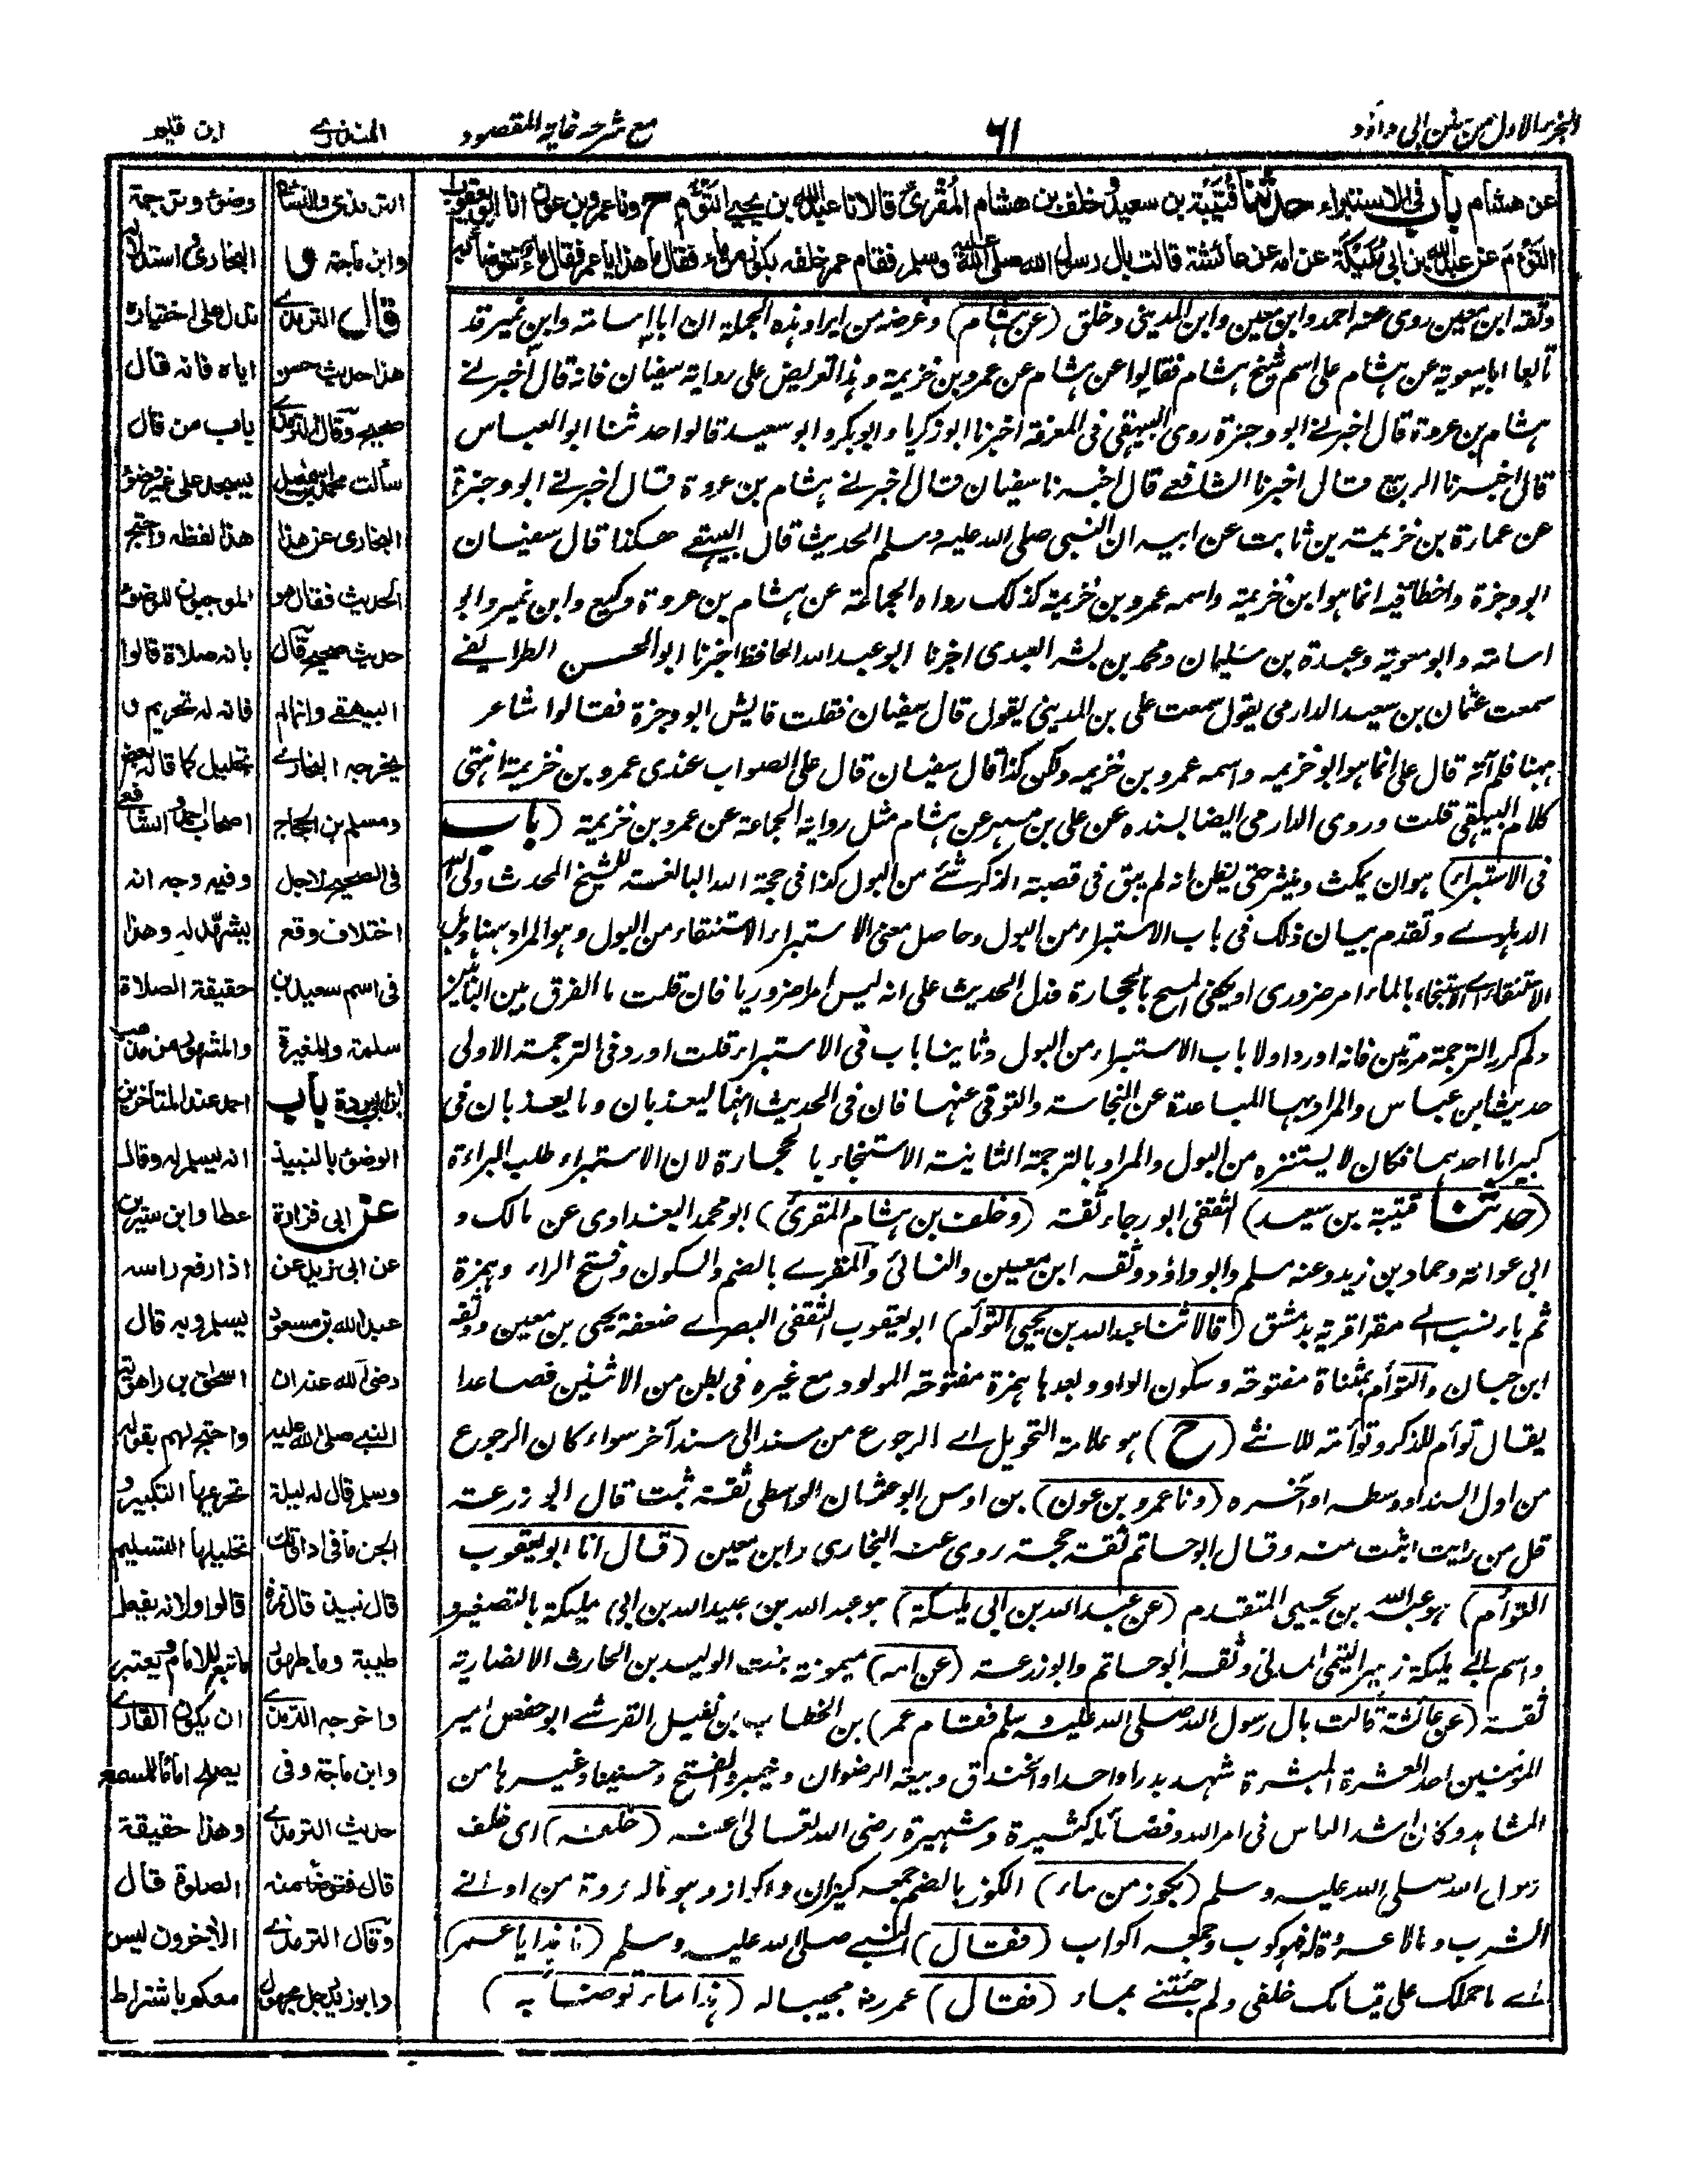 الجزء الاول من سنن ابی داؤد
٦١
مع شرحه غاية المقصود
المنذری
ابن قيم
عن هشام باب فی الاستبراء حدثنا قتيبة بن سعيد وخلف بن هشام المقرئ قالا نا عبد الله بن يحيے التوءم ح ونا عمرو بن عون انا ابو يعقوب
التوءم عن عبد الله بن ابی مليكة عن امه عن عائشة قالت بال رسول الله صلی الله عليه وسلم فقام عمر خلفه بكوز من ماء فقال ما هذا يا عمر فقال ماء تتوضأ به
وثقه ابن معين روی عنه احمد وابن معين وابن المدينی وخلق (عن هشام) وغرضه من ايراد هذه الجملة ان ابا اسامة وابن نمير قد
تابعا ابا معوية عن هشام علی اسم شيخ هشام فقالوا عن هشام عن عمرو بن خزيمة وهذا تعريض علی رواية سفيان فانه قال أخبرنے
هشام بن عروة قال اخبرنے ابو وجزة روی البيهقی فی المعرفة اخبرنا ابو زكريا وابو بكر وابو سعيد قالوا حدثنا ابو العباس
قال اخبرنا الربيع قال اخبرنا الشافعے قال اخبرنا سفيان قال اخبرنے هشام بن عروة قال اخبرنے ابو وجزة
عن عمارة بن خزيمة بن ثابت عن ابيه ان النبی صلی الله عليه وسلم الحديث قال البيهقے هكذا قال سفيان
ابو وجزة واخطأ فيه انما هو ابن خزيمة واسمه عمرو بن خزيمة كذلك رواه الجماعة عن هشام بن عروة وكيع وابن نمير وابو
اسامة وابو معوية وعبدة بن سليمان ومحمد بن بشر العبدی اخبرنا ابو عبد الله الحافظ اخبرنا ابو الحسن الطرايفے
سمعت عثمان بن سعيد الدارمی يقول سمعت علی بن المدينی يقول قال سفيان فقلت فايش ابو وجزة فقالوا شاعر
ههنا فلم آته قال علی انما هو ابو خزيمه واسمه عمرو بن خزيمه ولكن كذا قال سفيان قال علی الصواب عندی عمرو بن خزيمة انتهی
كلام البيهقی قلت وروی الدارمی ايضا بسنده عن علی بن مسهر عن هشام مثل رواية الجماعة عن عمرو بن خزيمة (باب
فی الاستبراء) هو ان يمكث وينثر حتی يظن انه لم يبق فی قصبة الذكر شئے من البول كذا فی حجة الله البالغة للشيخ المحدث ولی الله
الدهلوے وتقدم بيان ذلك فی باب الاستبراء من البول وحاصل معنی الاستبراء الاستنقاء من البول وهو المراد ههنا وهل
الاستنقاء ای الاستنجاء بالماء امر ضروری او يكفی المسح بالحجارة فدل الحديث علی انه ليس امرا ضروريا فان قلت ما الفرق بين البابين
ولم كرر الترجمة مرتين فانه اورد اولا باب الاستبراء من البول وثانيا باب فی الاستبراء قلت اورد فی الترجمة الاولی
حديث ابن عباس والمراد بها المباعدة عن النجاسة والتوقی عنها فان فی الحديث انهما ليعذبان وما يعذبان فی
كبير اما احدهما فكان لا يستنزه من البول والمراد بالترجمة الثانية الاستنجاء بالحجارة لان الاستبراء طلب البراءة
(حدثنا قتيبة بن سعيد) الثقفی ابو رجاء ثقة (وخلف بن هشام المقرئ) ابو محمد البغدادی عن مالك و
ابی عوانة وحماد بن زيد وعنه مسلم وابو داؤد وثقه ابن معين والنسائی والمقرے بالضم والسكون وفتح الراء وهمزة
ثم ياء نسب الے مقرا قرية بدمشق (قالا ثنا عبد الله بن يحيی التوأم) ابو يعقوب الثقفی البصرے ضعفه يحيی بن معين ووثقه
ابن حبان والتوأم بمثناة مفتوحة وسكون الواو وبعدها همزة مفتوحة المولود مع غيره فی بطن من الاثنين فصاعدا
يقال توأم للذكر وتوأمة للانثے (ح) هو علامة التحويل اے الرجوع من سند الی سند آخر سواء كان الرجوع
من اول السند او وسطه او آخره (ونا عمرو بن عون) بن اوس ابو عثمان الواسطی ثقة ثبت قال ابو زرعة
قل من رايت اثبت منه وقال ابو حاتم ثقة حجة روی عنه البخاری وابن معين (قال انا ابو يعقوب
التوأم) هو عبد الله بن يحيی المتقدم (عن عبد الله بن ابی مليكة) هو عبد الله بن عبيد الله بن ابی مليكة بالتصغير و
واسم ابی مليكة زهير التيمی المدنی وثقه ابو حاتم وابو زرعة (عن امه) ميمونة بنت الوليد بن الحارث الانصارية
ثقة (عن عائشة قالت بال رسول الله صلی الله عليه وسلم فقام عمر) بن الخطاب بن نفيل القرشے ابو حفص امير
المؤمنين احد العشرة المبشرة شهد بدرا واحدا والخندق وبيعة الرضوان وخيبر والفتح وحنينا وغيرها من
المشاهد وكان اشد الناس فی امر الله وفضائله كثيرة وشهيرة رضی الله تعالی عنه (خلفه) ای خلف
رسول الله صلی الله عليه وسلم (بكوز من ماء) الكوز بالضم جمعه كيزان واكواز وهو ماله عروة من اوانے
الشرب ومالا عروة له فهو كوب وجمعه اكواب (فقال) النبے صلی الله عليه وسلم (ما هذا يا عمر)
اے ما حملك علی قيامك خلفی ولم جئتنے بماء (فقال) عمر رضه مجيبا له (هذا ماء توضأ به)
الترمذی والنسائے
وابن ماجة و
قال الترمذے
هذا حديث حسن
صحيح وقال الترمذی
سألت محمد بن اسمعيل
البخاری عن هذا
الحديث فقال هو
حديث صحيح قال
البيهقے وانما لم
يخرجه البخارے
ومسلم بن الحجاج
فی الصحيح لاجل
اختلاف وقع
فی اسم سعيد بن
سلمة والمغيرة
بن ابی بردة باب
الوضوء بالنبيذ
عن ابی فزارة
عن ابی زيد عن
عبد الله بن مسعود
رضی الله عنه ان
النبے صلی الله عليه
وسلم قال له ليلة
الجن ما فی اداوتك
قال نبيذ قال تمرة
طيبة وماء طهور
واخرجه الترمذے
وابن ماجة وفی
حديث الترمذے
قال فتوضأ منه
وقال الترمذے
وابو زيد رجل مجهول
وضوء وترجمة
البخاری واستدلاله
تدل علی اختياره
اياه فانه قال
باب من قال
يسجد علی غير وضوء
هذا لفظه واحتج
الموجبون للوضوء
بانه صلاة قالوا
فانه له تحريم و
تحليل كما قاله بعض
اصحاب احمد والشافعے
وفيه وجه انه
يتشهد له وهذا
حقيقة الصلاة
والمشهور من مذهب
احمد عند المتاخرين
انه يسلم له وقال
عطا وابن سيرين
اذا رفع راسه
يسلم وبه قال
اسحق بن راهويه
واحتج لهم بقوله
تحريمها التكبير و
تحليلها التسليم
قالوا ولانه يفعل
تبعا للامام ويعتبر
ان يكون القارے
يصلح اماما للمستمع
وهذا حقيقة
الصلوة قال
الآخرون ليس
معكم باشتراط